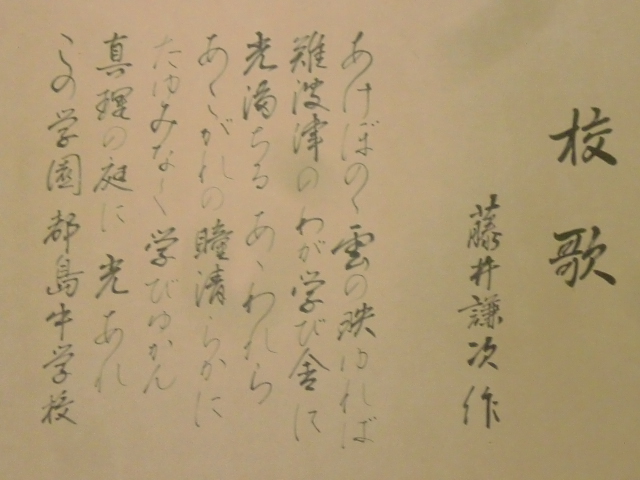 校歌
藤井謙次作
あけぼのゝ雲の映ゆれば
難波津のわが学び舎に
光満ちる あゝわれら
あこがれの瞳清らかに
たゆみなく学びゆかん
真理の庭に 光あれ
この学園都島中学校